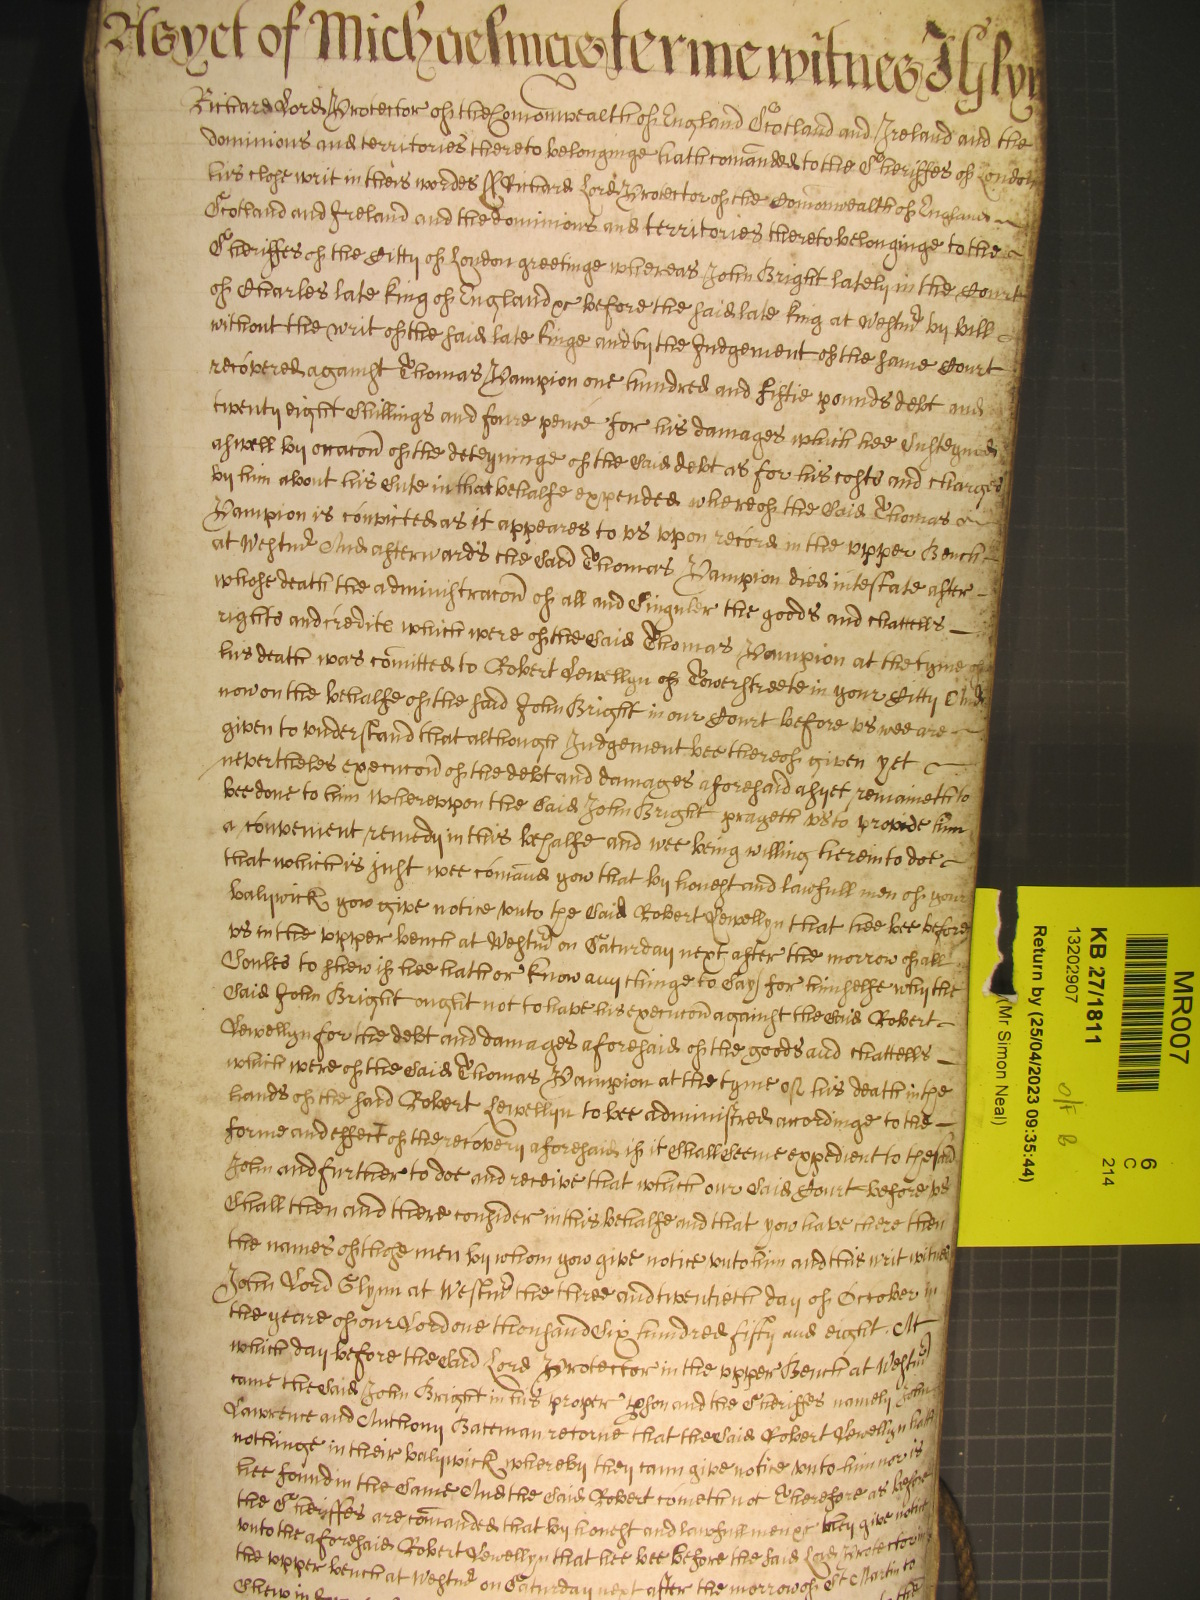 As yet of Michaelmas terme witnes J Glyn
Richard Lord Protector of the Comonwealth of England Scotland and Ireland and the
dominions and territories thereto belonginge hath comanded to the Sheriffes of London
his close writ in theis wordes ss Richard Lord Protector of the Comonwealth of England
Scotland and Ireland and the dominions and territories thereto belonginge to the
Sheriffes of the Citty of London greetinge whereas John Bright lately in the Court
of Charles late king of England &c before the said late king at Westmr by bill
without the writ of the said late kinge and by the Judgement of the same Court
recovered against Thomas Pampion one hundred and fiftie pounds debt and
twenty eight shillings and foure pence for his damages which hee susteyned
aswell by occacon of the deteyninge of the said debt as for his costs and charges
by him about his suite in that behalfe expended whereof the said Thomas
Pampion is convicted as it appeares to vs vpon record in the vpper Bench
at Westmr And afterwards the said Thomas Pampion died intestate after
whose death the administracon of all and singuler the goods and chattells
rights and credits which were of the said Thomas Pampion at the tyme of
his death was comitted to Robert Lewellyn of Towerstreete in your Citty And
now on the behalfe of the said John Bright in our Court before vs wee are
given to vnderstand that although Judgement bee thereof given yet
nevertheles execucon of the debt and damages aforesaid as yet remaineth to
bee done to him wherevpon the said John Bright prayeth vs to provide him
a convenient remedy in this behalfe and wee being willing herein to doe
that which is just wee comand yow that by honest and lawfull men of your
balywick yow give notice vnto the said Robert Lewellyn that hee bee before
vs in the vpper bench at Westmr on Saturday next after the morrow of all
Soules to shew if hee hath or know any thinge to say for himselfe why the
said John Bright ought not to have his execucon against the said Robert
Lewellyn for the debt and damages aforesaid of the goods and chattells
which were of the said Thomas Pampion at the tyme of his death in the
hands of the said Robert Lewellyn to bee administred accordinge to the
forme and effect of the recovery aforesaid if it shall seeme expedient to the said
John and further to doe and receive that which our said Court before vs
shall then and there consider in this behalfe and that yow have there then
the names of those men by whom yow give notice vnto him and this writ witnes
John Lord Glynn at Westmr the three and twentieth day of October in
the yeare of our Lord one thousand six hundred fifty and eight At
which day before the said Lord Protector in the vpper Bench at Westmr
came the said John Bright in his proper pson and the Sheriffes namely John
Lawrence and Anthony Bateman retorne that the said Robert Lewellyn hath
nothinge in their balywick whereby they cann give notice vnto him nor is
hee found in the same And the said Robert cometh not Therefore as before
the Sheriffes are comanded that by honest and lawfull men &c they give notice
vnto the aforesaid Robert Lewellyn that hee bee before the said Lord Protector in
the vpper bench at Westmr on Saturday next after the morrow of St Martin to
shew if
MR007
6
C
214
KB 27/1811
13202907
o/t B
Return by (25/04/2023 09:35:44)
(Mr Simon Neal)